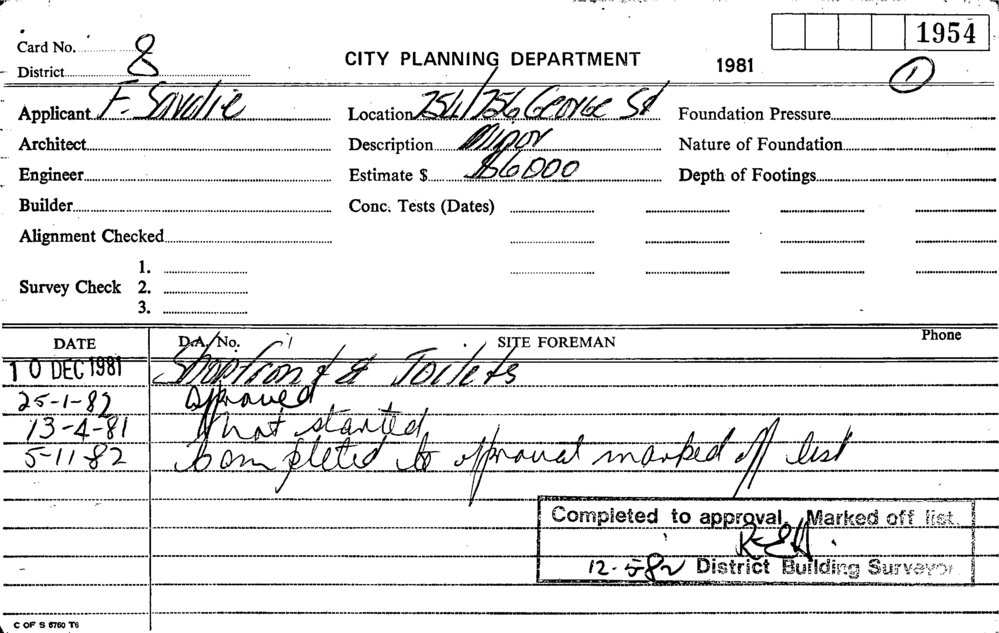 1954
Card No. 8
CITY PLANNING DEPARTMENT 1981
District
1
Applicant F. Savdie Location 254/256 George St Foundation Pressure
Architect Description Minor Nature of Foundation
Engineer Estimate $ $6000 Depth of Footings
Builder Conc. Tests (Dates)
Alignment Checked
1.
Survey Check 2.
3.
DATE D.A. No. SITE FOREMAN Phone
10 DEC 1981 Shopfront & Toilets
25-1-82 Approved
13-4-81 started
5-11-82 Completed to approval marked off list
Completed to approval. Marked off list.
12-5-82 District Building Surveyor
C OF S 5760 T6